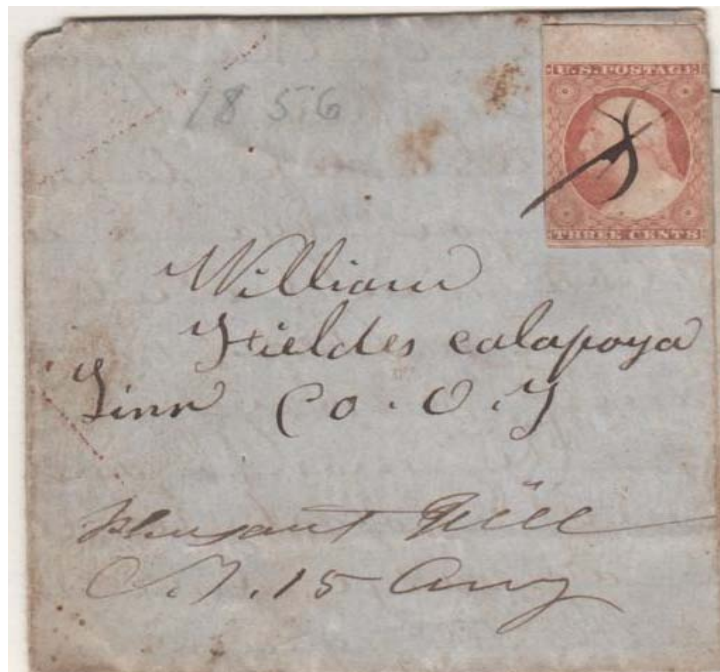 1856
U.S. POSTAGE
THREE CENTS
William
Fieldes calapoya
Linn Co. O.T
Pleasant Hill
O.T. 15 Aug